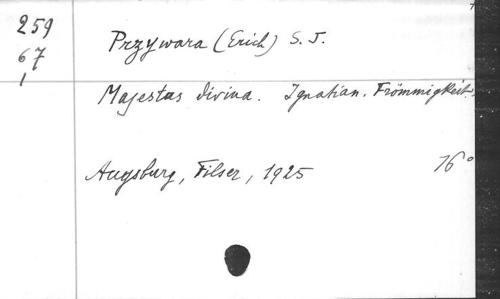 259
67
1
Przywara (Erich) S. J.
Majestas divina. Ignatian. Frömmigkeit.
Augsburg, Filser, 1925
16°